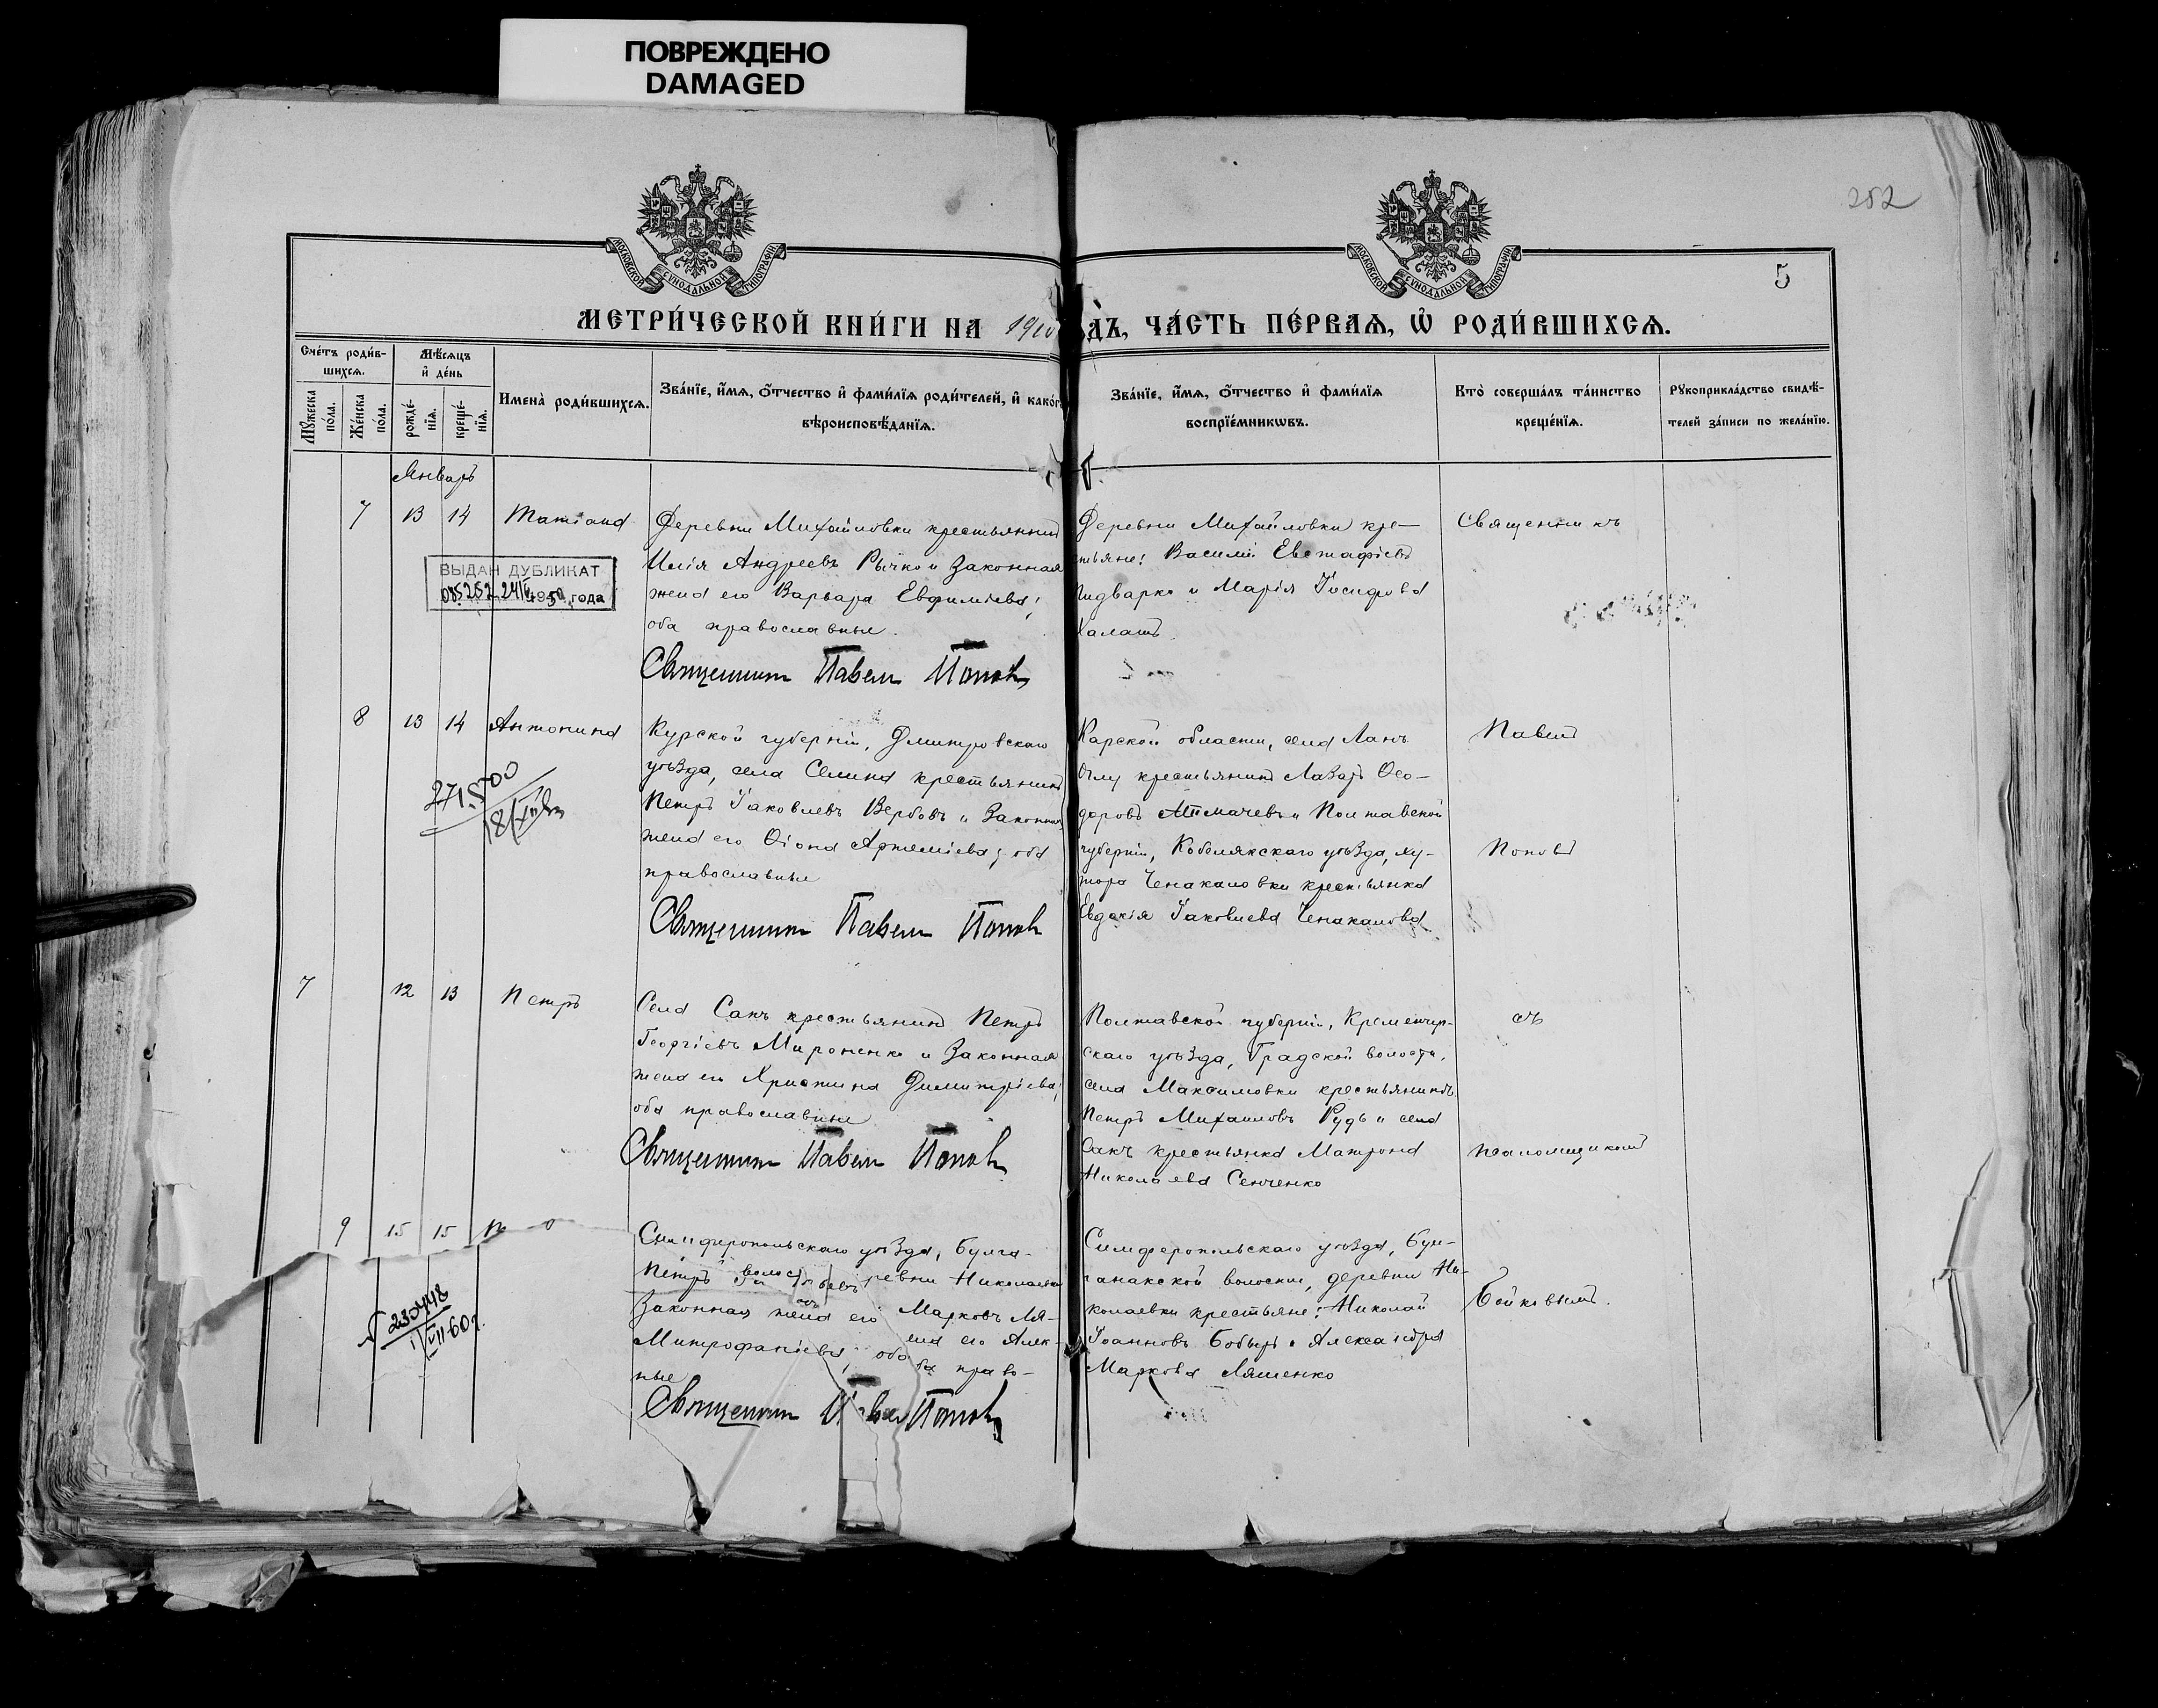 ПОВРЕЖДЕНО
DAMAGED
252
5
МОСКОВСКОЙ СѴНОДАЛЬНОЙ ТИПОГРАФІИ
МОСКОВСКОЙ СѴНОДАЛЬНОЙ ТИПОГРАФІИ
МЕТРИ́ЧЕСКОЙ КНИ́ГИ НА 1910
ДЪ, ЧА́СТЬ ПЕ́РВАѦ, Ѡ҆ РОДИ́ВШИХСѦ.
Сче́тъ роди́в-
шихсѧ.
Мꙋ́жеска по́ла.
Же́нска по́ла.
Мѣ́сѧцъ
и҆ де́нь
рожде́-
нїѧ.
креще́-
нїѧ.
Имена̀ роди́вшихсѧ.
Зва́нїе, и҆́мѧ, ѻ҆́тчество и҆ фами́лїѧ роди́телей, и҆ како́г
вѣроисповѣ́данїѧ.
Зва́нїе, и҆́мѧ, ѻ҆́тчество и҆ фами́лїѧ
воспрїе́мникѡвъ.
Кто̀ соверша́лъ та́инство
креще́нїѧ.
Рꙋкоприкла́дство свидѣ́-
телей за́писи по жела́нїю.
Январь
7 13 14 Татіана
Деревни Михайловки крестьянинъ
Илія Андреевъ Рычко и законная
жена его Варвара Евфиміева;
оба православные.
Священникъ Павелъ Поповъ
Деревни Михайловки кре-
стьяне: Василій Евстафіевъ
Гидварко и Марія Іосифова
Халатъ.
Священникъ
ВЫДАН ДУБЛИКАТ
085252 24/II 1950 года
8 13 14 Антонина
Курской губерніи, Дмитровскаго
уѣзда, села Селина крестьянинъ
Петръ Іаковлевъ Вербовъ и законная
жена его Ѳіона Артеміева; оба
православные
Священникъ Павелъ Поповъ
Карской области, села Ланъ
крестьянинъ Лазарь Ѳео-
доровъ и Полтавской
губерніи, Кобелякскаго уѣзда, ху-
тора Ченакаловки крестьянка
Евдокія Іаковлева Ченакалова
Павелъ
Поповъ
271500
18/XII
7 12 13 Петръ
Села Сакъ крестьянинъ Петръ
Георгіевъ Мироненко и законная
жена его Христина Димитріева;
оба православные
Священникъ Павелъ Поповъ
Полтавской губерніи, Кременчуг-
скаго уѣзда, Градской волости,
села Максимовки крестьянинъ
Петръ Михаиловъ Рудь и села
Сакъ крестьянка Матрона
Николаева Сенченко
съ
псаломщикомъ
9 15 15
Симферопольскаго уѣзда, Булга-
Петръ волос ревни Николаевки
законная жена его Марковъ Ля-
Митрофаніева; оба ена его Алек-
ные ба право-
Священникъ Павелъ Поповъ
Симферопольскаго уѣзда, Бул-
ганакской волости, деревни Ни-
колаевки крестьяне: Николай
Іоанновъ Бобырь и Александра
Маркова Ляшенко
Бойковымъ.
230448
1/VII-60г.